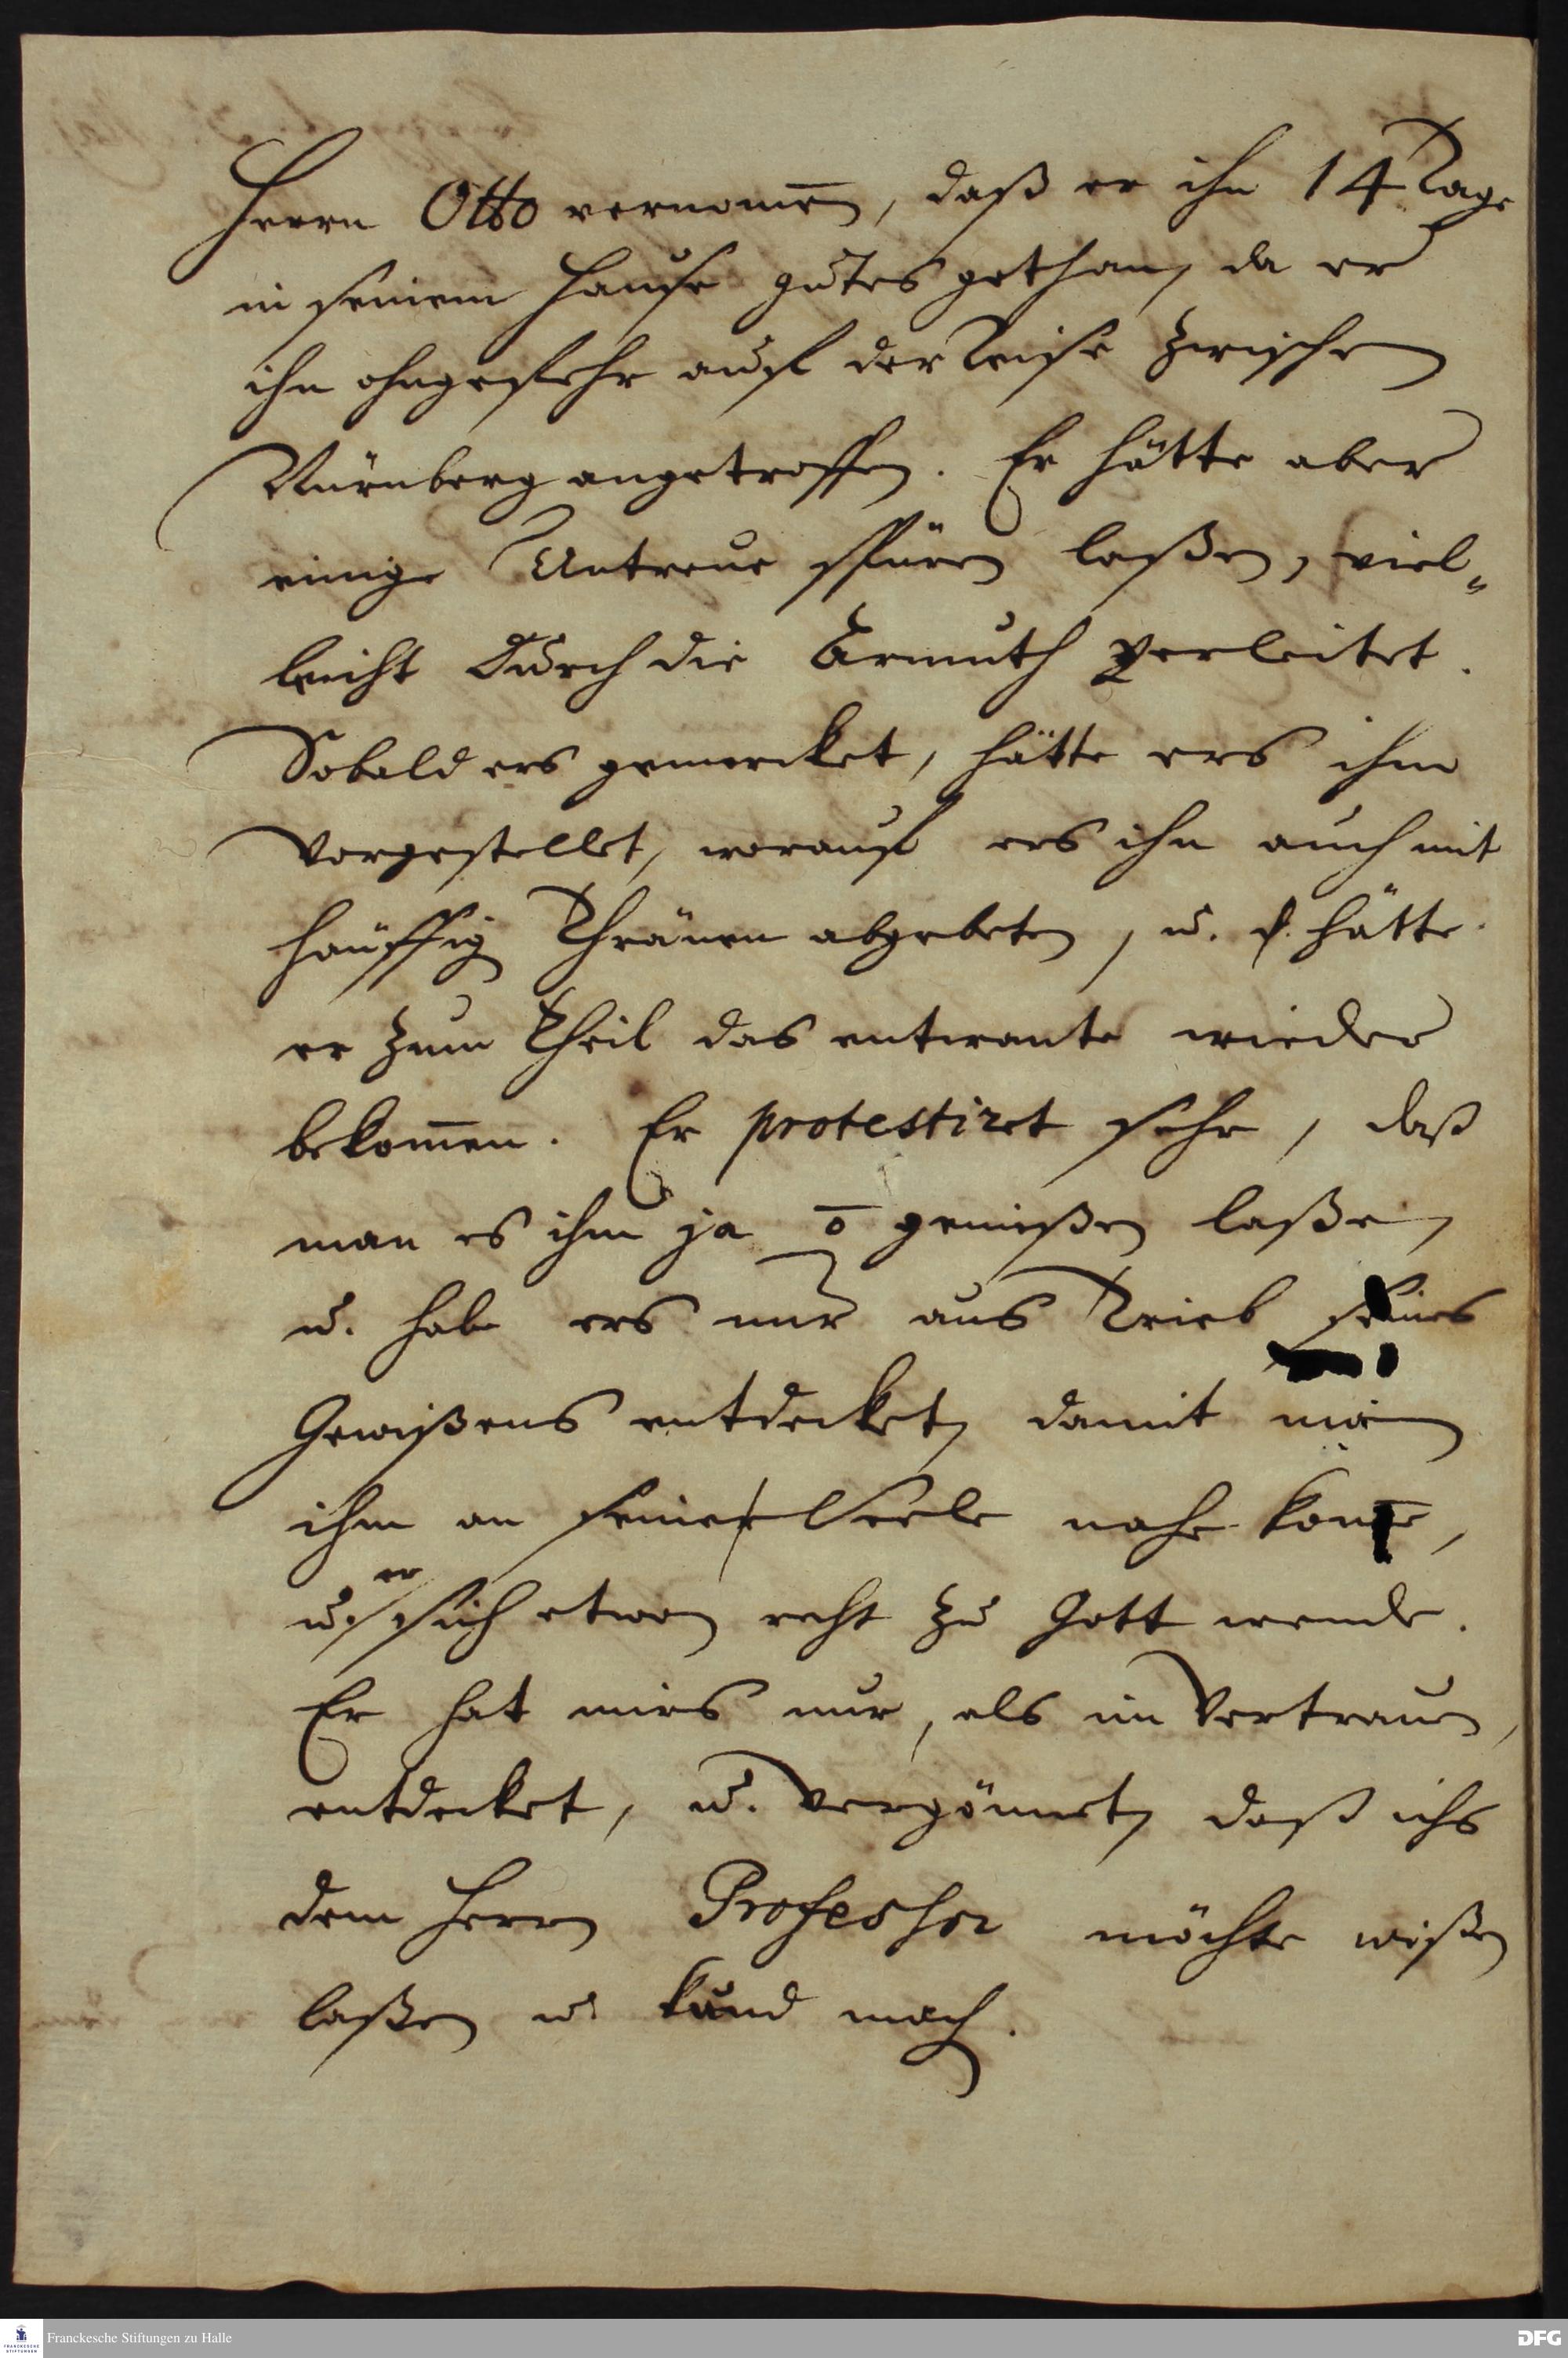 Herrn Otto vernom̄en, daß er ihn 14 Tage
in seinem Hause gutes gethan, da er
ihn ohngefehr auf der Reise zwischen
Nürnberg angetroffen. Er hätte aber
einige Untreue spüren laßen, viel„
leicht durch die Armuth verleitet.
Sobald ers gemercket, hätte ers ihm
vorgestellet, worauf ers ihn auch mit
häuffig Thränen abgebeten, u. hätte
er zum Theil das entwante wieder
bekom̄en. Er protestiret sehr, daß
man es ihm ja ō genießen laße,
u. habe ers nur aus Trieb seines
Gewißens entdecket, damit man
ihm an seiner Seele nahe kom̄e,
u. er sich etwan recht zu Gott wende.
Er hat mirs nur, als im Vertrauen,
entdecket, u. vergönnet, daß ichs
dem Herrn Professor möchte wißen
laßen u. kund mach.
Franckesche Stiftungen zu Halle
FRANCKESCHE STIFTUNGEN
DFG